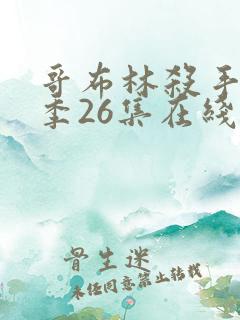 哥布林杀手
季26集在线
骨生迷
未经同意禁止转载